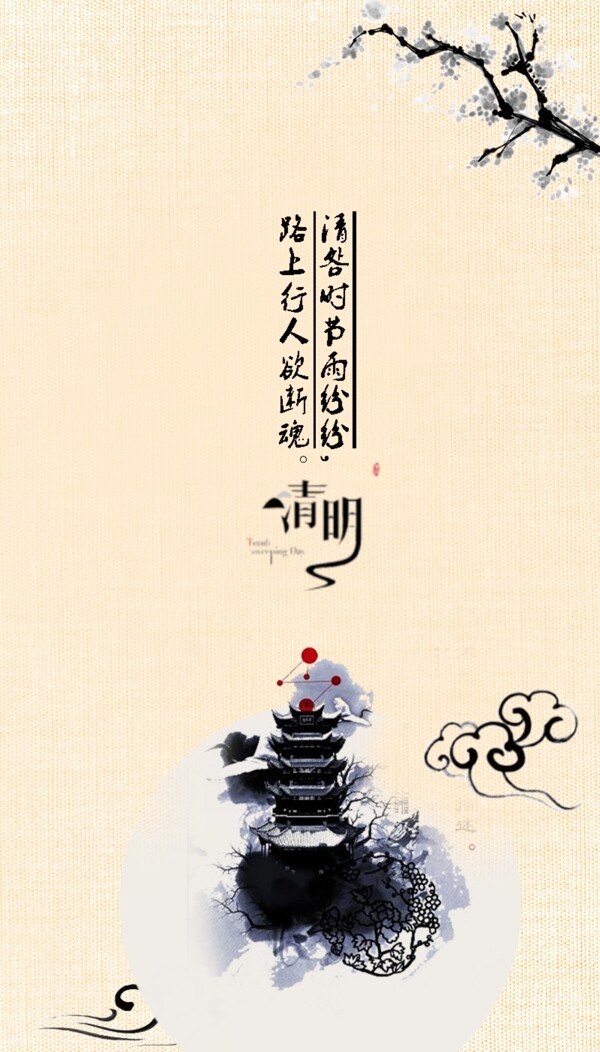 清咎时节雨纷纷，
路上行人欲断魂。
清明
Tomb
sweeping Day